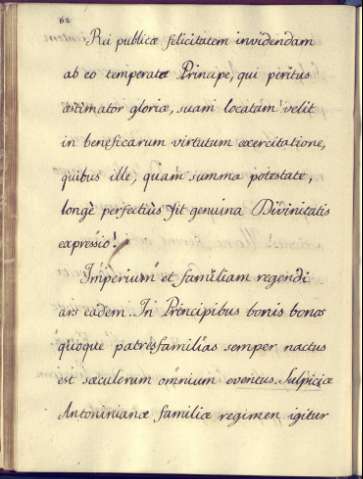 62
Rei publicæ felicitatem invidendam
ab eo temperatæ Principe, qui peritus
æstimator gloriæ, suam locatam velit
in beneficarum virtutum exercitatione,
quibus ille, quàm summa potestate,
longè perfectiùs fit genuina Divinitatis
expressio!
Imperium et familiam regendi
ars eadem. In Principibus bonis bonos
quoque patresfamilias semper nactus
est sæculorum omnium eventus. Sulpiciæ
Antoninianæ familiæ regimen igitur